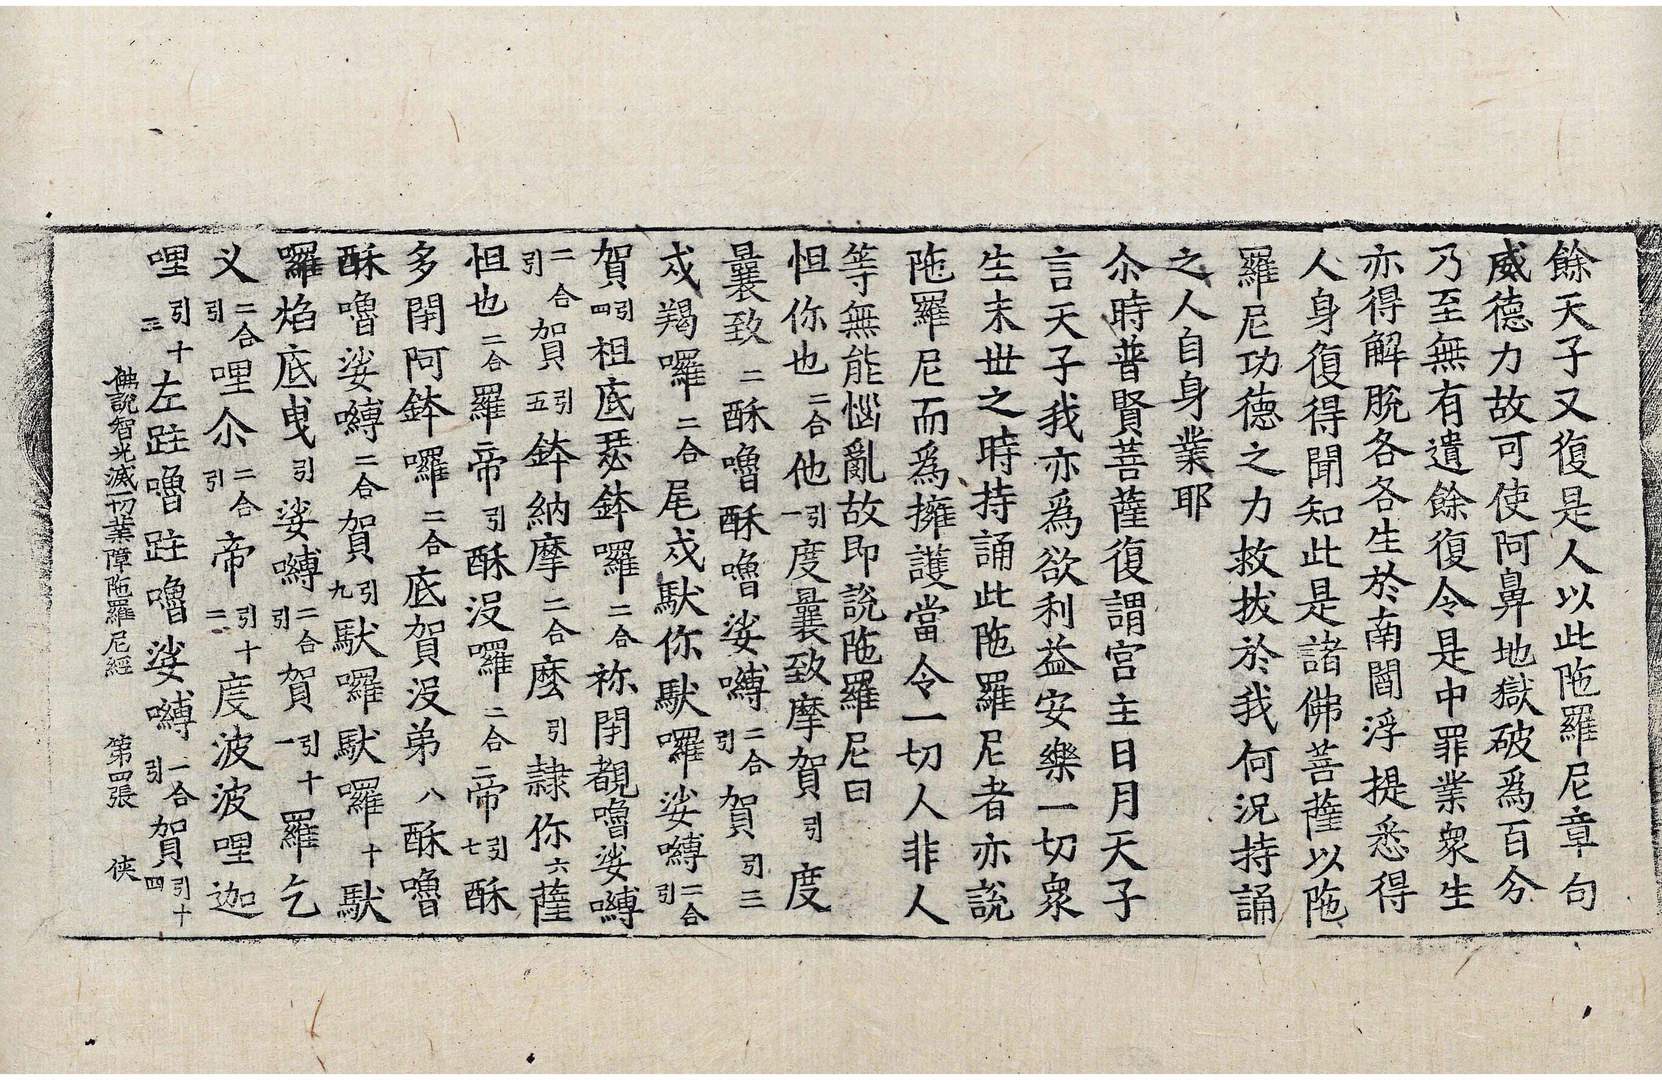 餘天子又復是人以此陁羅尼章句
威德力故可使阿鼻地獄破爲百分
乃至無有遺餘復令是中罪業衆生
亦得解脫各各生於南閻浮提悉得
人身復得聞知此是諸佛菩薩以陁
羅尼功德之力救拔於我何況持誦
之人自身業耶
尒時普賢菩薩復謂宮主日月天子
言天子我亦爲欲利益安樂一切衆
生末世之時持誦此陁羅尼者亦說
陁羅尼而爲擁護當令一切人非人
等無能惱亂故即說陁羅尼曰
怛你也二合他引一度曩致摩賀引度
曩致二酥嚕酥嚕娑嚩二合引賀引三
戍羯囉二合尾戍馱你馱囉娑嚩二合引
賀引四祖底瑟鉢囉二合祢閉覩嚕娑嚩
二合引賀引五鉢納摩二合麽引隷你六薩
怛也二合羅帝引酥沒囉二合帝引七酥
多閉阿鉢囉二合底賀沒弟八酥嚕
酥嚕娑嚩二合賀引九馱囉馱囉十馱
囉焰底曳引娑嚩二合引賀引十一羅乞
义二合引哩尒二合引帝引十二度波波哩迦
哩引十三左跓嚕跓嚕娑嚩二合引賀引十四
佛說智光滅一切業障陁羅尼經 第四張 俠